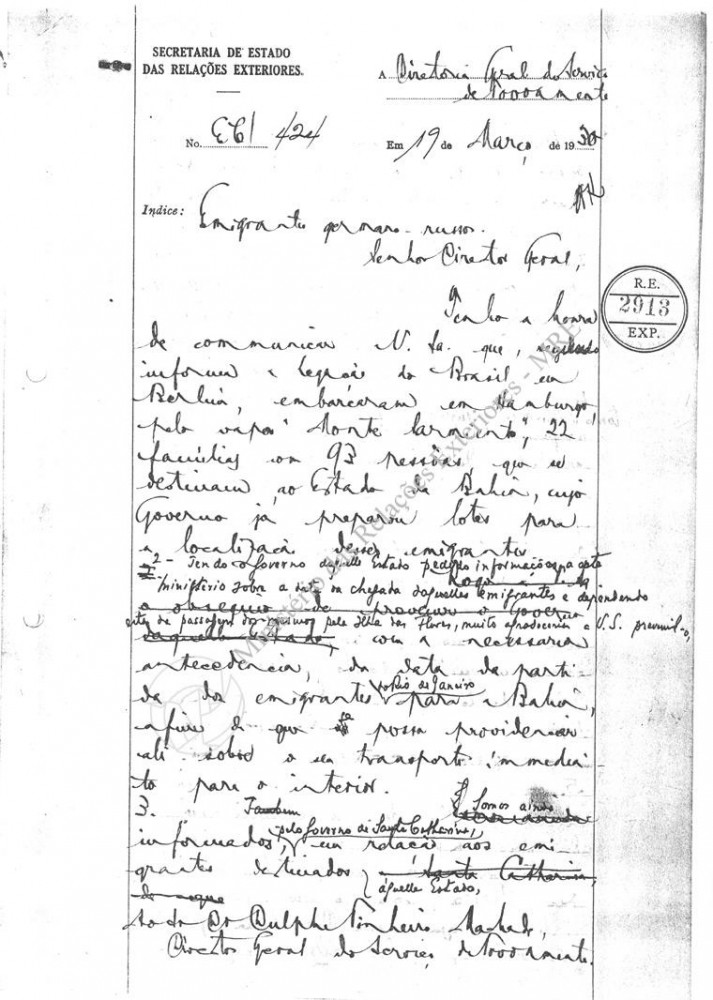 SECRETARIA DE ESTADO
DAS RELAÇÕES EXTERIORES.
A Directoria Geral do Serviço
de Povoamento
No. EC/ 424
Em 19 de Março de 1930
Indice: Emigrantes germano-russos.
Senhor Director Geral,
R.E.
2913
EXP.
Tenho a honra
de communicar V. Sa. que, segundo
informa a Legação do Brasil em
Berlim, embarcaram em Hamburgo,
pelo vapor "Monte Sarmiento", 22
familias com 93 pessôas, que se
destinam ao Estado da Bahia, cujo
Governo já preparou lotes para
a localização desses emigrantes
2 - Tendo o Governo daquelle Estado pedido informações a este
Ministério sobre a data da chegada daquelles emigrantes e dependendo
o obsequio de
estes de passagem dos mesmos pela Ilha das Flores, muito agradeceria a V.S. prevenil-o,
daquelle Estado, com a necessaria
antecedencia, da data da parti-
da dos emigrantes do Rio de Janeiro para a Bahia,
afim de que se possa providenciar
ali sobre o seu transporte immedia-
to para o interior.
3. Tambem Somos ainda
informados, pelo Governo de Santa Catharina, em relação aos emi-
grantes destinados Santa Catharina,
áquelle Estado,
do mesmo
Ao Sr. Dr. Dulphe Pinheiro Machado,
Director Geral do Serviço de Povoamento.
Ministério das Relações Exteriores - MRE